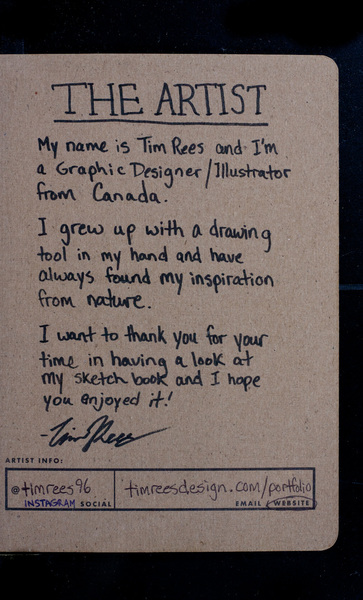 THE ARTIST
My name is Tim Rees and I'm
a Graphic Designer/Illustrator
from Canada.
I grew up with a drawing
tool in my hand and have
always found my inspiration
from nature.
I want to thank you for your
time in having a look at
my sketch book and I hope
you enjoyed it!
-Tim Rees
ARTIST INFO:
@timrees96
INSTAGRAM SOCIAL
timreesdesign.com/portfolio
EMAIL WEBSITE